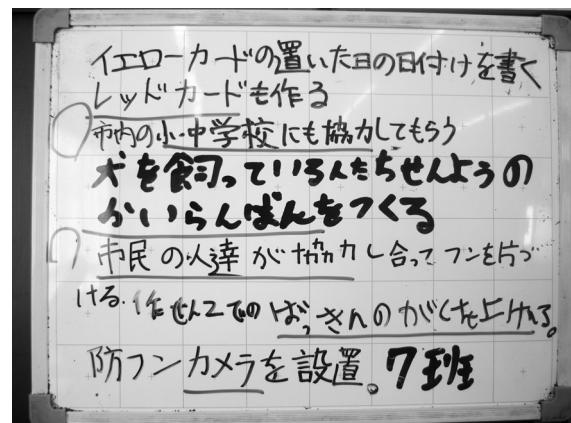 イエローカードの置いた日の日付けを書く
レッドカードも作る
市内の小・中学校にも協力してもらう
犬を飼っている人たちせんようの
かいらんばんをつくる
市民の人達が協力し合ってフンを片づ
ける.作せん2でのばっきんのがくを上げる。
防フンカメラを設置。7班